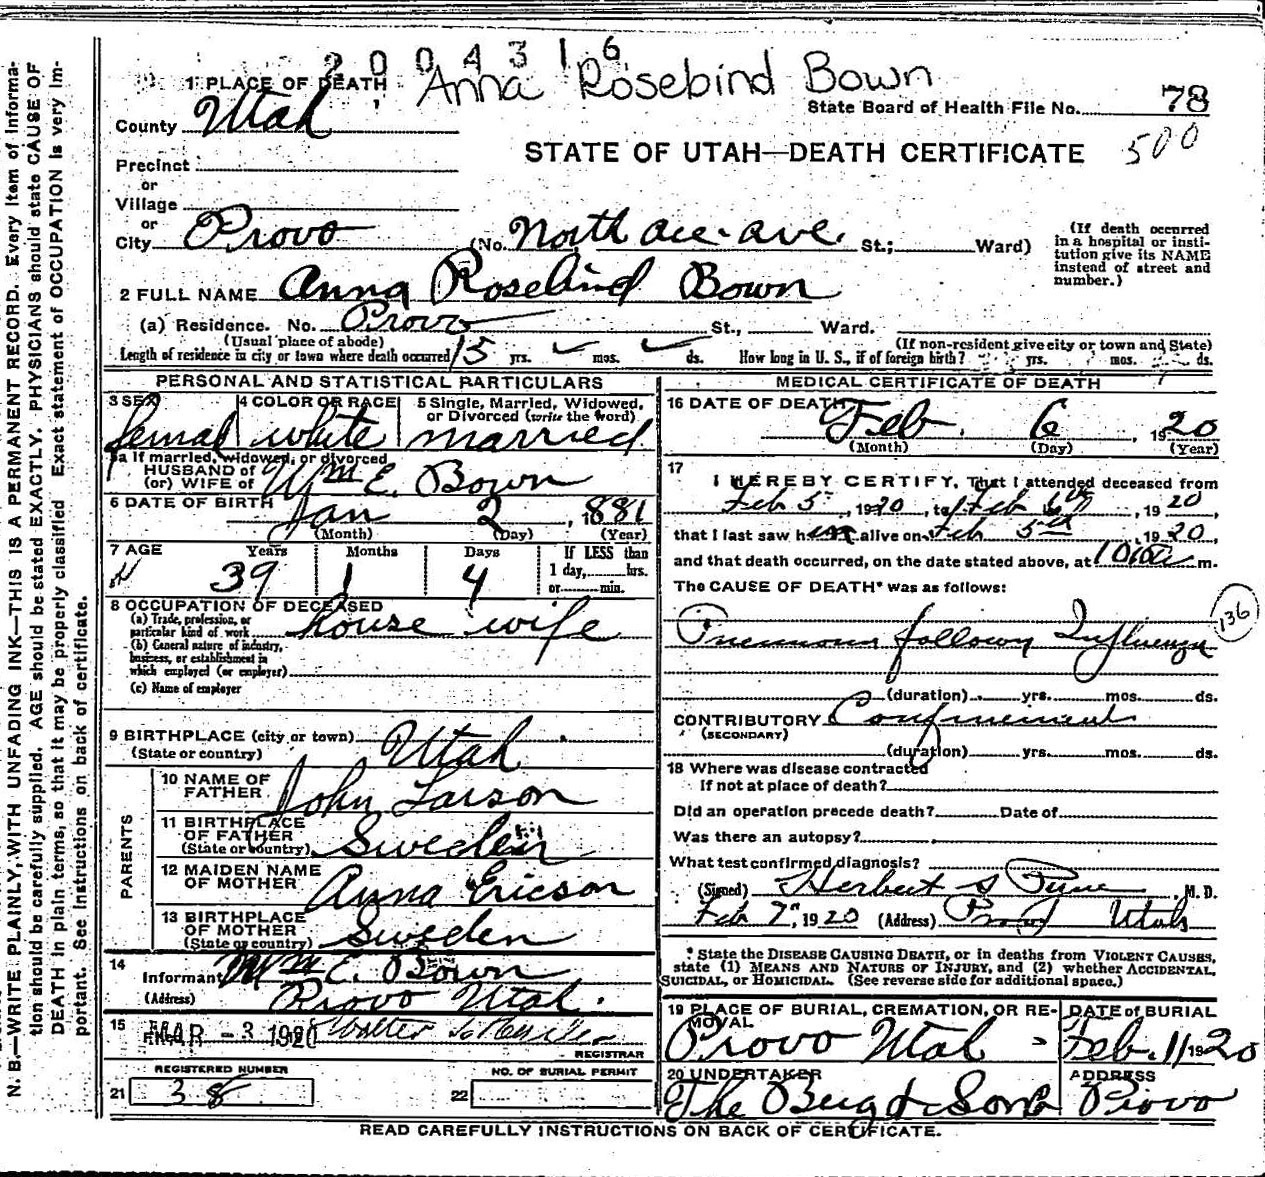 2004316
Anna Rosebind Bown
1 PLACE OF DEATH
State Board of Health File No. 78
County Utah
500
STATE OF UTAH—DEATH CERTIFICATE
Precinct
or
Village
or
City Provo (No. North Ave. St.; Ward)
(If death occurred in a hospital or institution give its NAME instead of street and number.)
2 FULL NAME Anna Rosebind Bown
(a) Residence. No. Provo St., Ward.
(Usual place of abode) (If non-resident give city or town and State)
Length of residence in city or town where death occurred 15 yrs. mos. ds. How long in U. S., if of foreign birth? yrs. mos. ds.
PERSONAL AND STATISTICAL PARTICULARS
3 SEX femal
4 COLOR OR RACE white
5 Single, Married, Widowed, or Divorced (write the word) married
5a If married, widowed, or divorced
HUSBAND of
(or) WIFE of Wm E. Bown
6 DATE OF BIRTH Jan 2, 1881
(Month) (Day) (Year)
7 AGE Years Months Days If LESS than
39 1 4 1 day, hrs.
or min.
8 OCCUPATION OF DECEASED
(a) Trade, profession, or particular kind of work house wife
(b) General nature of industry, business, or establishment in which employed (or employer)
(c) Name of employer
9 BIRTHPLACE (city or town) Utah
(State or country)
PARENTS
10 NAME OF FATHER John Larson
11 BIRTHPLACE OF FATHER (State or country) Sweden
12 MAIDEN NAME OF MOTHER Anna Ericson
13 BIRTHPLACE OF MOTHER (State or country) Sweden
14 Informant Wm E. Bown
(Address) Provo Utah.
15 MAR -3 1920
REGISTRAR
REGISTERED NUMBER NO. OF BURIAL PERMIT
21 38 22
MEDICAL CERTIFICATE OF DEATH
16 DATE OF DEATH Feb. 6, 1920
(Month) (Day) (Year)
17 I HEREBY CERTIFY, That I attended deceased from
Feb 5th, 1920, to Feb 6th, 1920
that I last saw her alive on Feb 5th 1920,
and that death occurred, on the date stated above, at m.
The CAUSE OF DEATH* was as follows:
136
Pneumonia following Influenza
(duration) yrs. mos. ds.
CONTRIBUTORY Confinement
(SECONDARY)
(duration) yrs. mos. ds.
18 Where was disease contracted
If not at place of death?
Did an operation precede death? Date of
Was there an autopsy?
What test confirmed diagnosis?
(Signed) Herbert S Pyne M. D.
Feb 7th, 1920 (Address) Provo Utah
* State the DISEASE CAUSING DEATH, or in deaths from VIOLENT CAUSES,
state (1) MEANS AND NATURE OF INJURY, and (2) whether ACCIDENTAL,
SUICIDAL, or HOMICIDAL. (See reverse side for additional space.)
19 PLACE OF BURIAL, CREMATION, OR REMOVAL Provo Utah
DATE of BURIAL Feb. 11 1920
20 UNDERTAKER The Berg & Sons
ADDRESS Provo
READ CAREFULLY INSTRUCTIONS ON BACK OF CERTIFICATE.
N. B.—WRITE PLAINLY, WITH UNFADING INK—THIS IS A PERMANENT RECORD. Every item of information
should be carefully supplied. AGE should be stated EXACTLY. PHYSICIANS should state CAUSE OF
DEATH in plain terms, so that it may be properly classified Exact statement of OCCUPATION is very important.
See instructions on back of certificate.